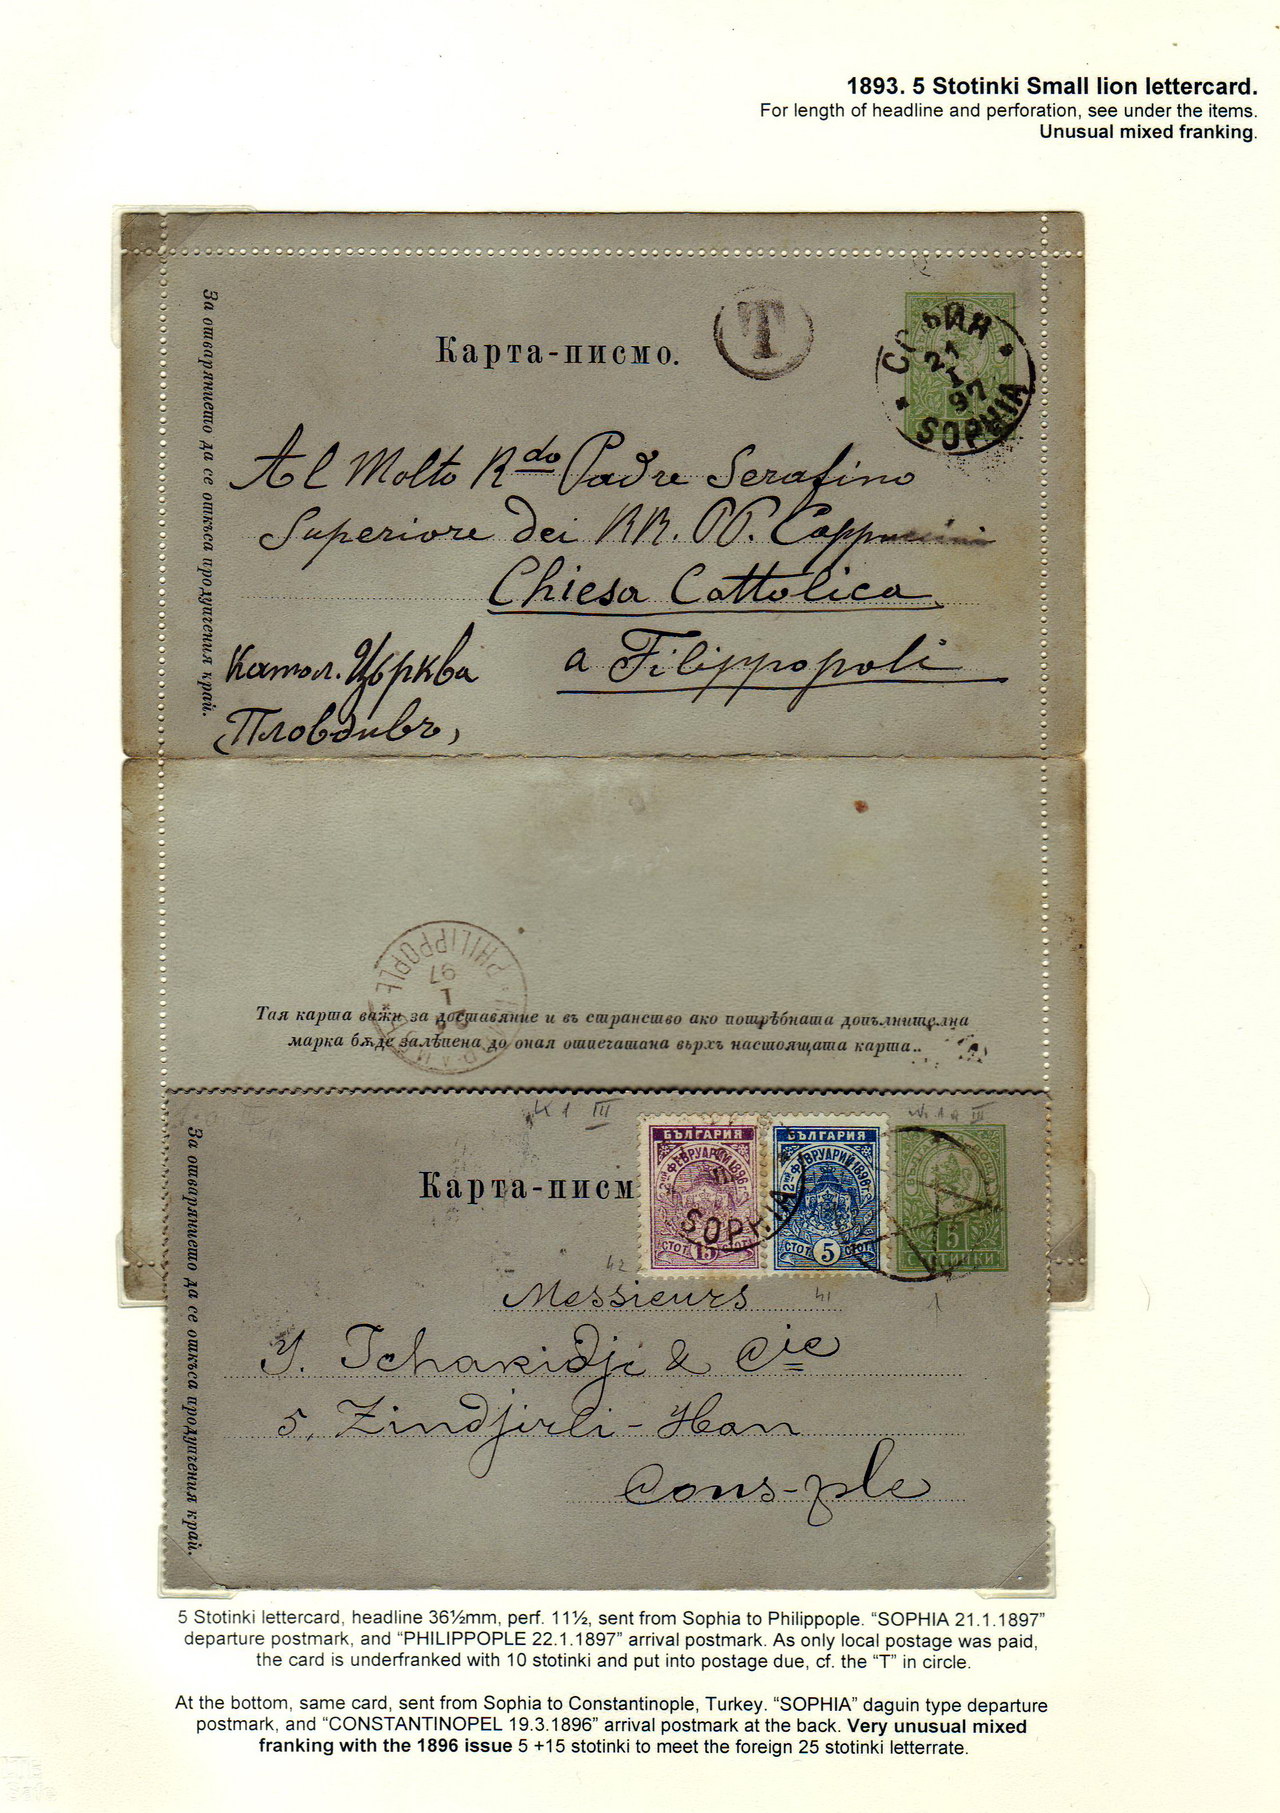 1893. 5 Stotinki Small lion lettercard.
For length of headline and perforation, see under the items.
Unusual mixed franking.
За отварянието да се откъса продупчения край.
Карта-писмо.
T
СОФИЯ
21
I
97
SOPHIA
Al Molto Rdo Padre Serafino
Superiore dei RR. PP. Cappuccini
Chiesa Cattolica
a Filippopoli
Катол. Църква
Пловдивъ,
PHILIPPOPLE
I
97
Тая карта важи за доставяние и въ странство ако потрѣбната допълнителна
марка бѫде залѣпена до оная отпечатана върхъ настоящата карта..
К 1 III
№ 1 a III
За отварянието да се откъса продупчения край.
Карта-писм
БЪЛГАРИЯ
2ий ФЕВРУАРИЙ 1896 г.
СТОТ. 15 СТОТ.
БЪЛГАРИЯ
2ий ФЕВРУАРИЙ 1896 г.
СТОТ. 5 СТОТ.
5
СТОТИНКИ
SOPHIA
42
41
1
Messieurs
Y. Tchakidji & Cie
5, Zindjirli-Han
Cons-ple
5 Stotinki lettercard, headline 36½mm, perf. 11½, sent from Sophia to Philippople. “SOPHIA 21.1.1897”
departure postmark, and “PHILIPPOPLE 22.1.1897” arrival postmark. As only local postage was paid,
the card is underfranked with 10 stotinki and put into postage due, cf. the “T” in circle.
At the bottom, same card, sent from Sophia to Constantinople, Turkey. “SOPHIA” daguin type departure
postmark, and “CONSTANTINOPEL 19.3.1896” arrival postmark at the back. Very unusual mixed
franking with the 1896 issue 5 +15 stotinki to meet the foreign 25 stotinki letterrate.